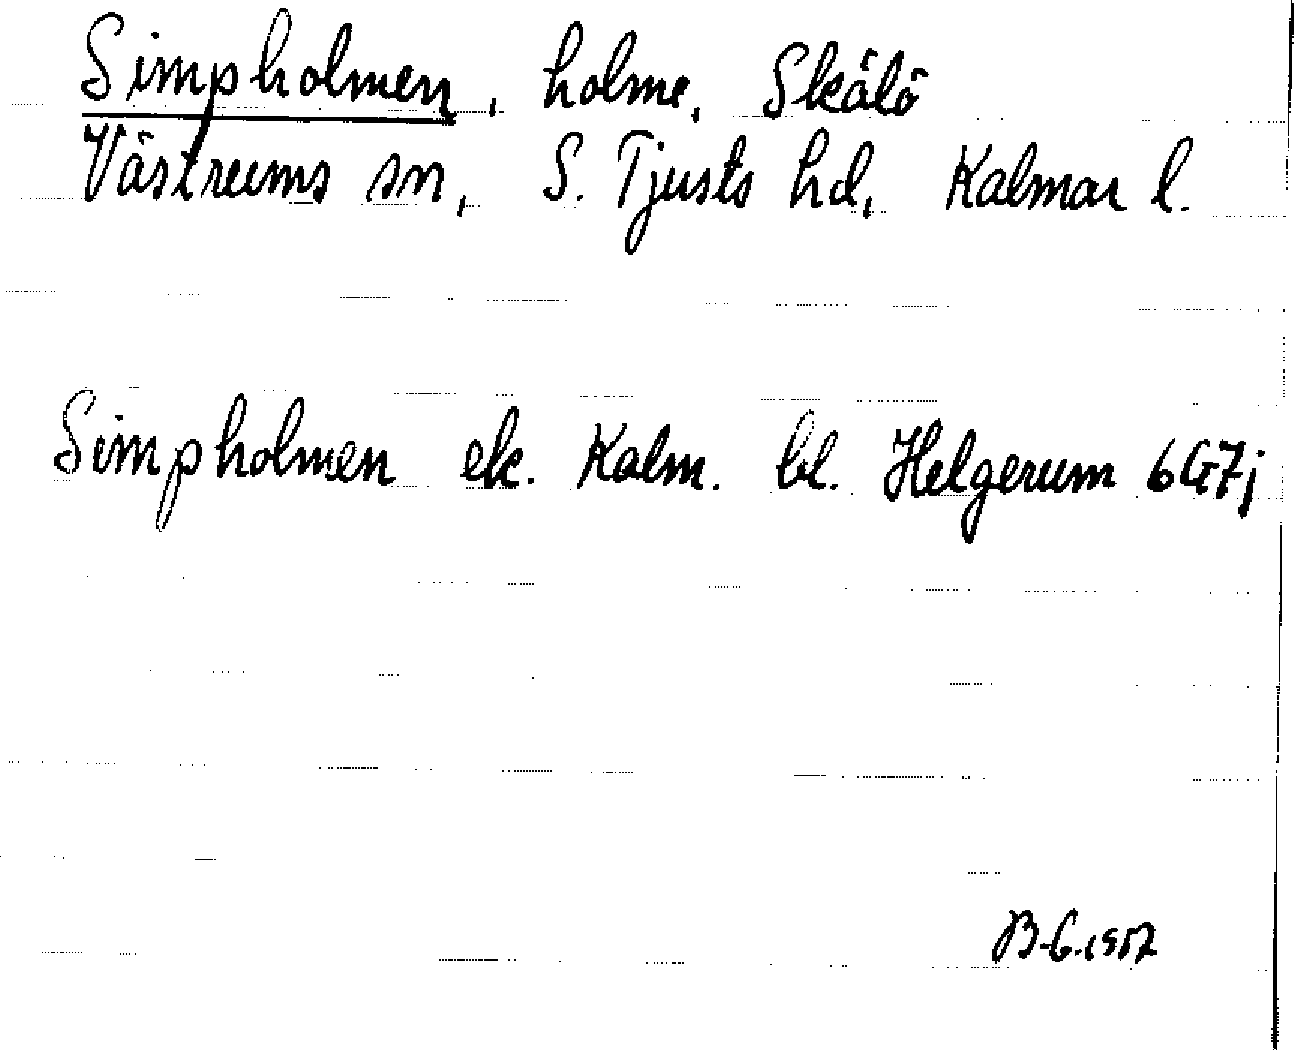 Simpholmen, holme, Skälö
Västrums sn, S. Tjusts hd, Kalmar l.
Simpholmen ek. Kalm. bl. Helgerum 6G7j